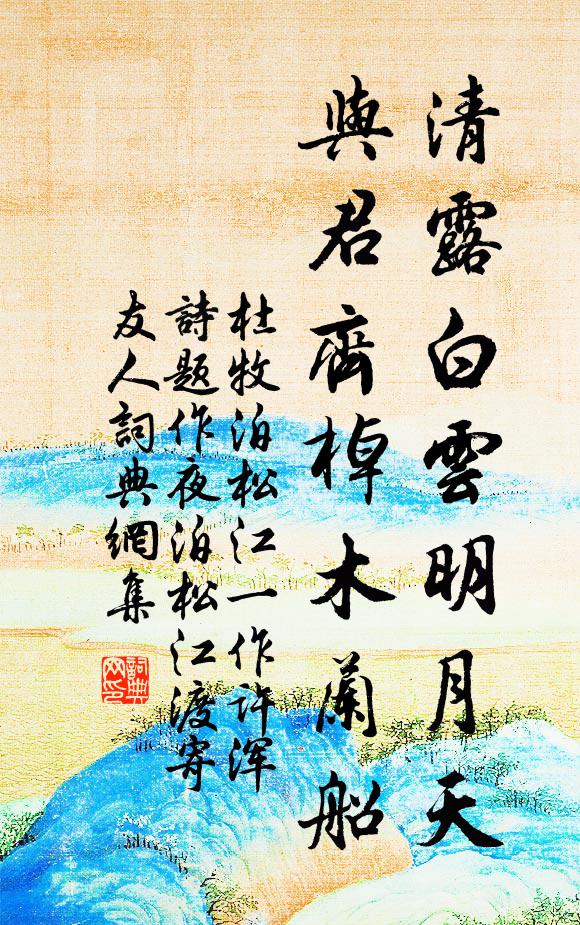 清露白雲明月天
與君齊棹木蘭船
杜牧泊松江一作許渾
詩題作夜泊松江渡寄
友人詞典網集
詞典網印